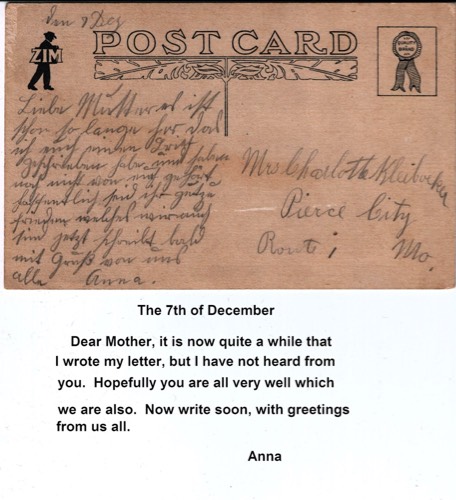 den 7 Dez
ZIM
POST CARD
Liebe Mutter es ist
schon so lange her das
ich euch einden Brief
geschrieben habe und haben
noch nicht von euch gehört
hoffentlich seid ihr gut zu
frieden welches wir auch
sin jetzt schreibt bald
mit Gruß von uns
alle Anna.
Mrs Charlotte Kleiboeker
Pierce City
Route 1 Mo.
The 7th of December
Dear Mother, it is now quite a while that
I wrote my letter, but I have not heard from
you. Hopefully you are all very well which
we are also. Now write soon, with greetings
from us all.
Anna